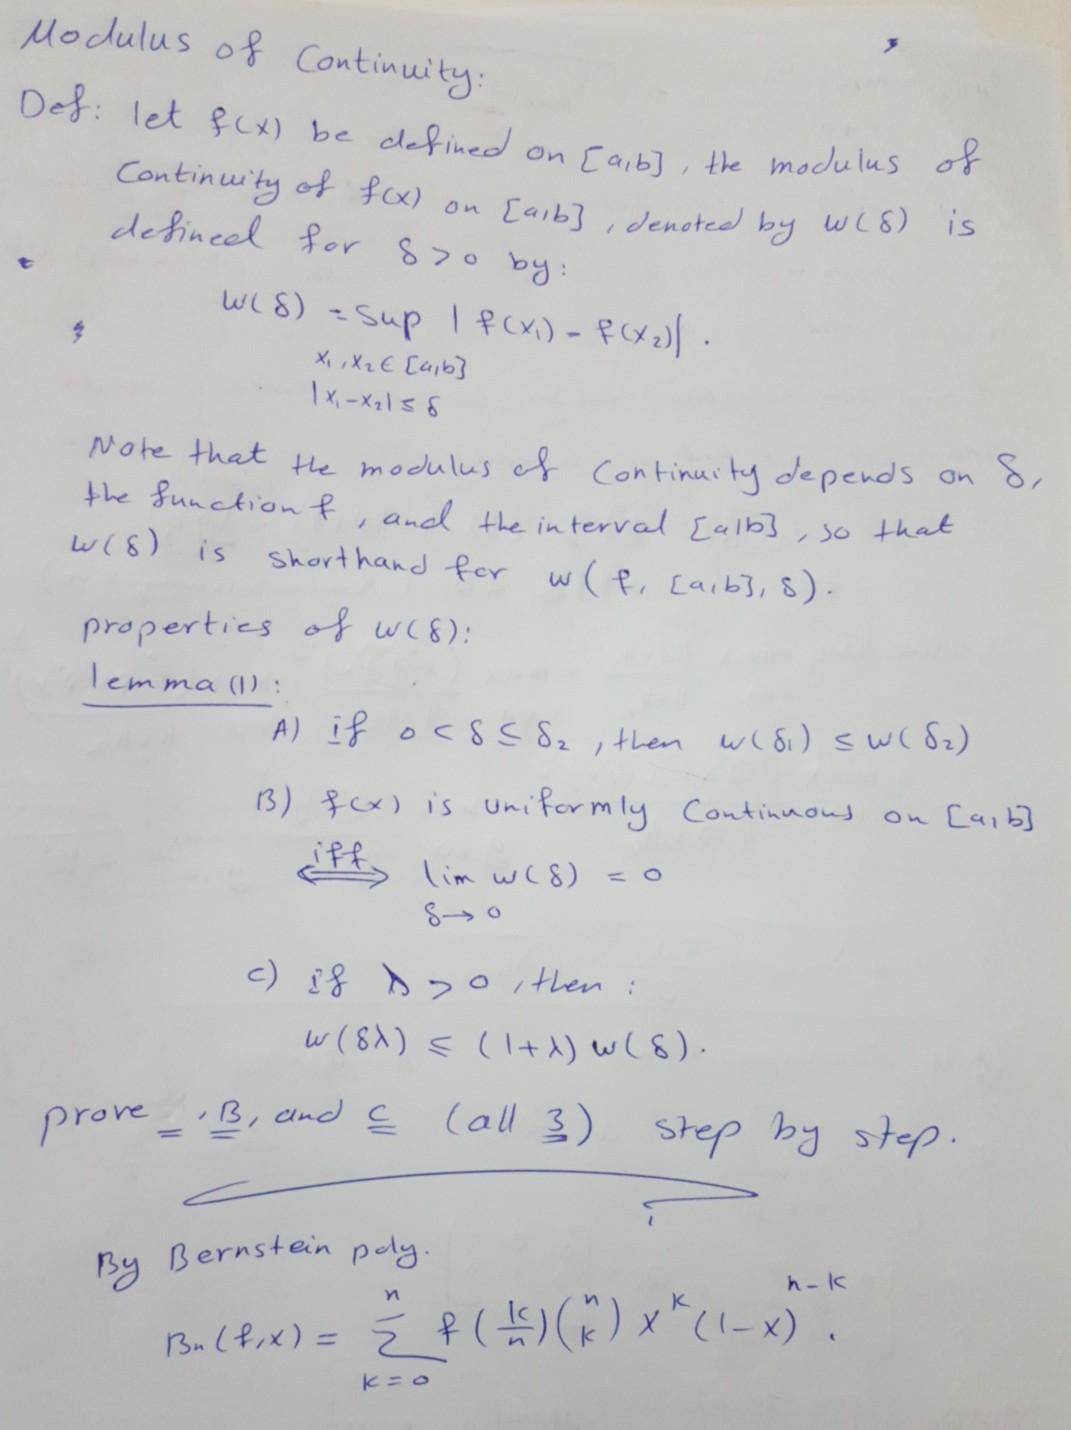 Modulus of Continuity:
Def: let f(x) be defined on [a,b], the modulus of
Continuity of f(x) on [a,b], denoted by w(δ) is
defined for δ>0 by:
w(δ) = Sup | f(x₁) - f(x₂)| .
x₁,x₂ ∈ [a,b]
|x₁-x₂| ≤ δ
Note that the modulus of Continuity depends on δ,
the function f, and the interval [a,b], so that
w(δ) is shorthand for w(f, [a,b], δ).
properties of w(δ):
lemma (1):
A) if 0 < δ ≤ δ₂, then w(δ₁) ≤ w(δ₂)
B) f(x) is uniformly Continuous on [a,b]
iff
⟺ lim w(δ) = 0
δ→0
C) if λ > 0, then:
w(δλ) ≤ (1+λ) w(δ).
prove _, B, and C (all 3) step by step.
By Bernstein poly.
Bn(f,x) = Σ f(k/n)(n k) x^k (1-x)^n-k .
n
k=0